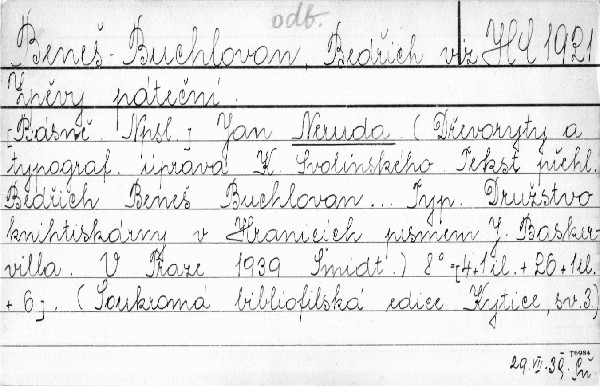 odb.
Beneš-Buchlovan, Bedřich viz HČ 1921
Zpěvy páteční.
[Básně. Npsl.] Jan Neruda. (Dřevoryty a
typograf. úprava K. Svolinského. Tekst přehl.
Bedřich Beneš Buchlovan... Typ. Družstvo
knihtiskárny v Hranicích písmem J. Basker-
villa. V Praze 1939 Šmidt.) 8° [4+1 il. + 26 + 1 il.
+ 6]. (Soukromá bibliofilská edice Kytice, sv. 3.)
T6984
29.VII.39.